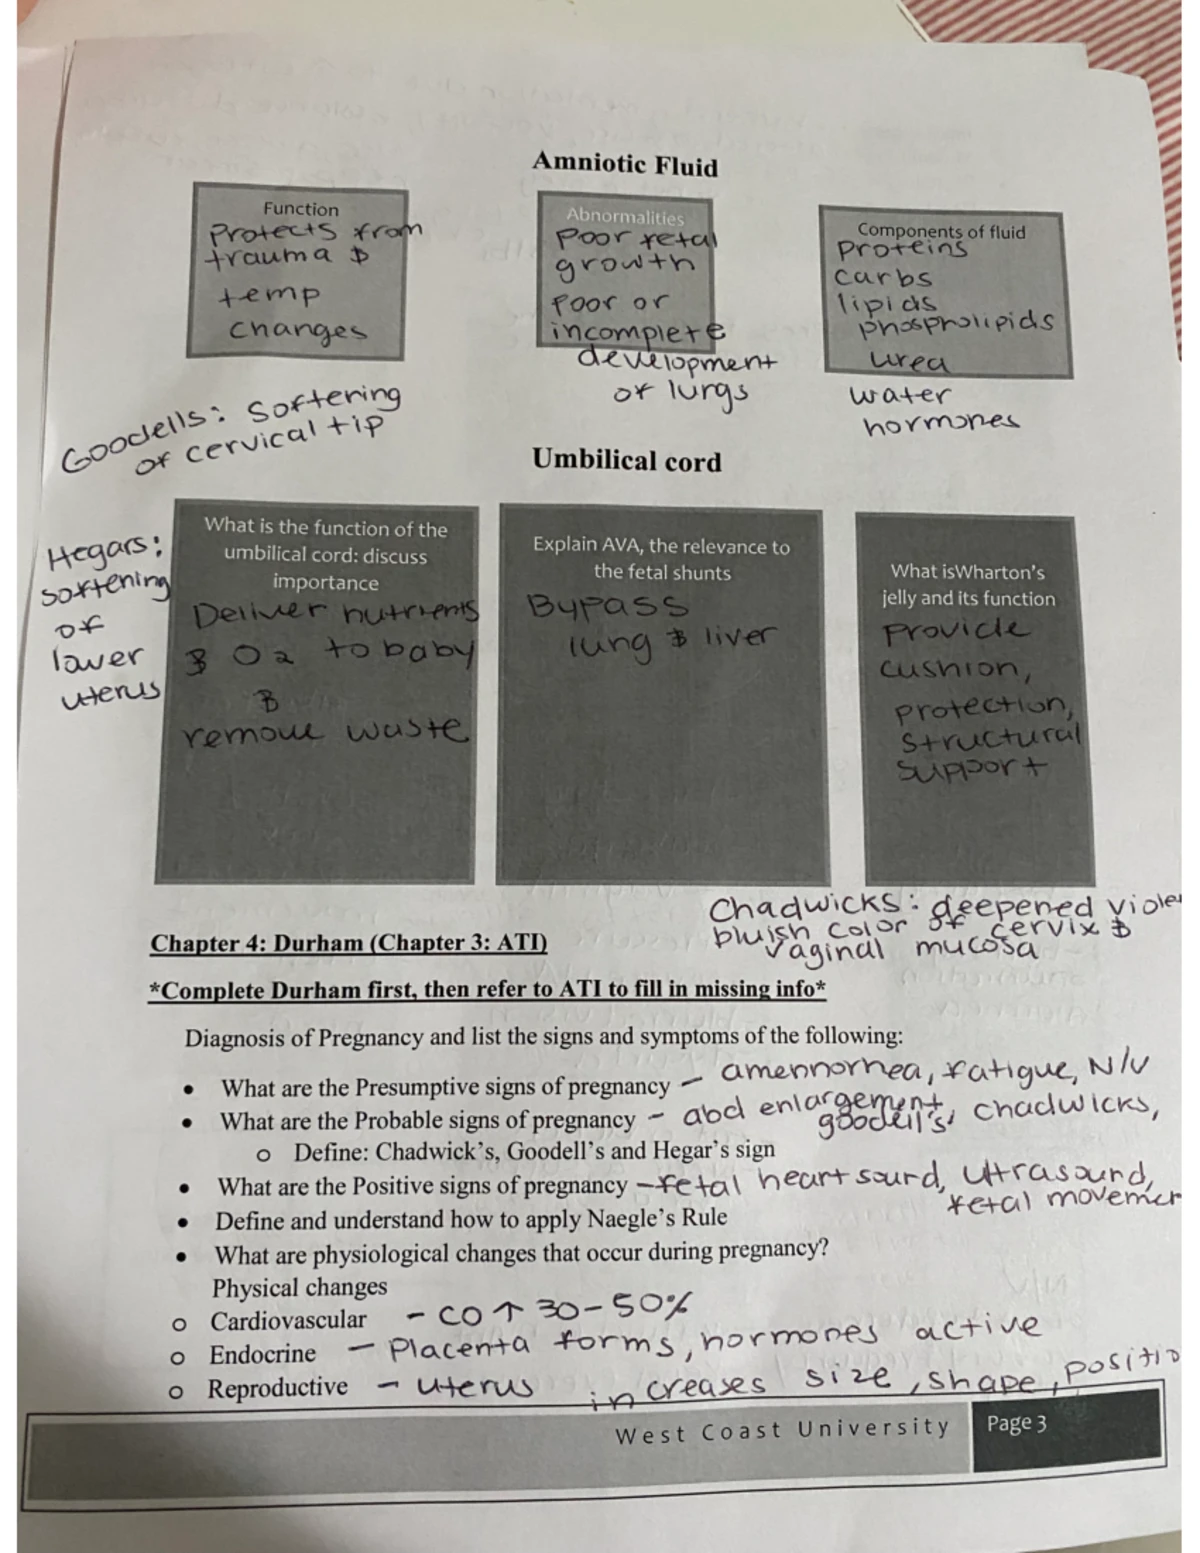 Amniotic Fluid
Function
Protects from
trauma &
temp
changes
Abnormalities
Poor fetal
growth
Poor or
incomplete
development
of lungs
Components of fluid
Proteins
carbs
lipids
phospholipids
urea
water
hormones
Goodells: Softering
of cervical tip
Umbilical cord
Hegars:
softening
of
lower
uterus
What is the function of the
umbilical cord: discuss
importance
Deliver nutrients
& O2 to baby
&
remove waste
Explain AVA, the relevance to
the fetal shunts
Bypass
lung & liver
What isWharton's
jelly and its function
Provide
cushion,
protection,
structural
support
Chadwicks: deepened viole
bluish color of cervix &
vaginal mucosa
Chapter 4: Durham (Chapter 3: ATI)
*Complete Durham first, then refer to ATI to fill in missing info*
Diagnosis of Pregnancy and list the signs and symptoms of the following:
• What are the Presumptive signs of pregnancy – amennorhea, fatigue, N/V
• What are the Probable signs of pregnancy – abd enlargement, goodell's, chadwicks,
o Define: Chadwick's, Goodell's and Hegar's sign
• What are the Positive signs of pregnancy – fetal heart sound, ultrasound,
fetal movemen
• Define and understand how to apply Naegle's Rule
• What are physiological changes that occur during pregnancy?
Physical changes
o Cardiovascular – CO ↑ 30-50%
o Endocrine – Placenta forms, hormones active
o Reproductive – uterus increases size, shape, positio
West Coast University Page 3